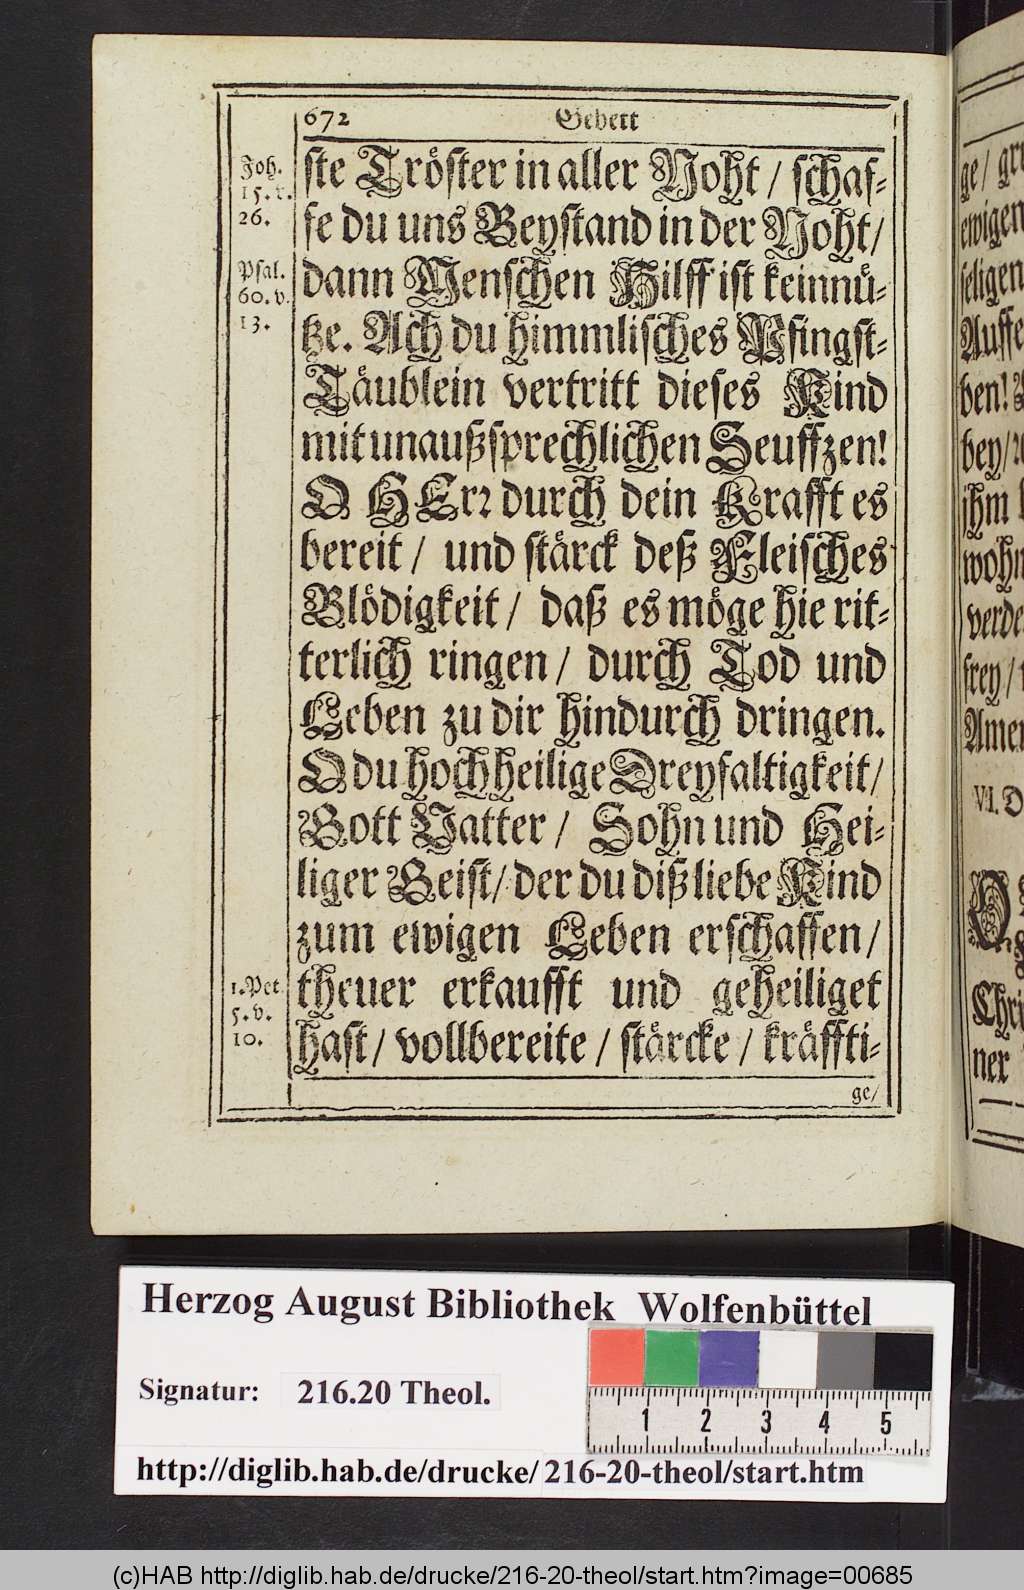 672 Gebett
Joh.
15. v.
26.
Psal.
60. v.
13.
ste Tröster in aller Noht / schaf-
fe du uns Beystand in der Noht /
dann Menschen Hilff ist kein nü-
tze. Ach du himmlisches Pfingst-
Täublein vertritt dieses Kind
mit unaußsprechlichen Seuffzen!
O HErr durch dein Krafft es
bereit / und stärck deß Fleisches
Blödigkeit / daß es möge hie rit-
terlich ringen / durch Tod und
Leben zu dir hindurch dringen.
O du hochheilige Dreyfaltigkeit /
Gott Vatter / Sohn und Hei-
liger Geist / der du diß liebe Kind
zum ewigen Leben erschaffen /
theuer erkaufft und geheiliget
hast / vollbereite / stärcke / kräffti-
1. Pet.
5. v.
10.
ge /
ewigen
seligen
Auffe
ben!
bey /
ihm
wohn
verde
frey /
Amen
VI. D
Chri
ner
Herzog August Bibliothek Wolfenbüttel
Signatur: 216.20 Theol.
1 2 3 4 5
http://diglib.hab.de/drucke/216-20-theol/start.htm
(c)HAB http://diglib.hab.de/drucke/216-20-theol/start.htm?image=00685